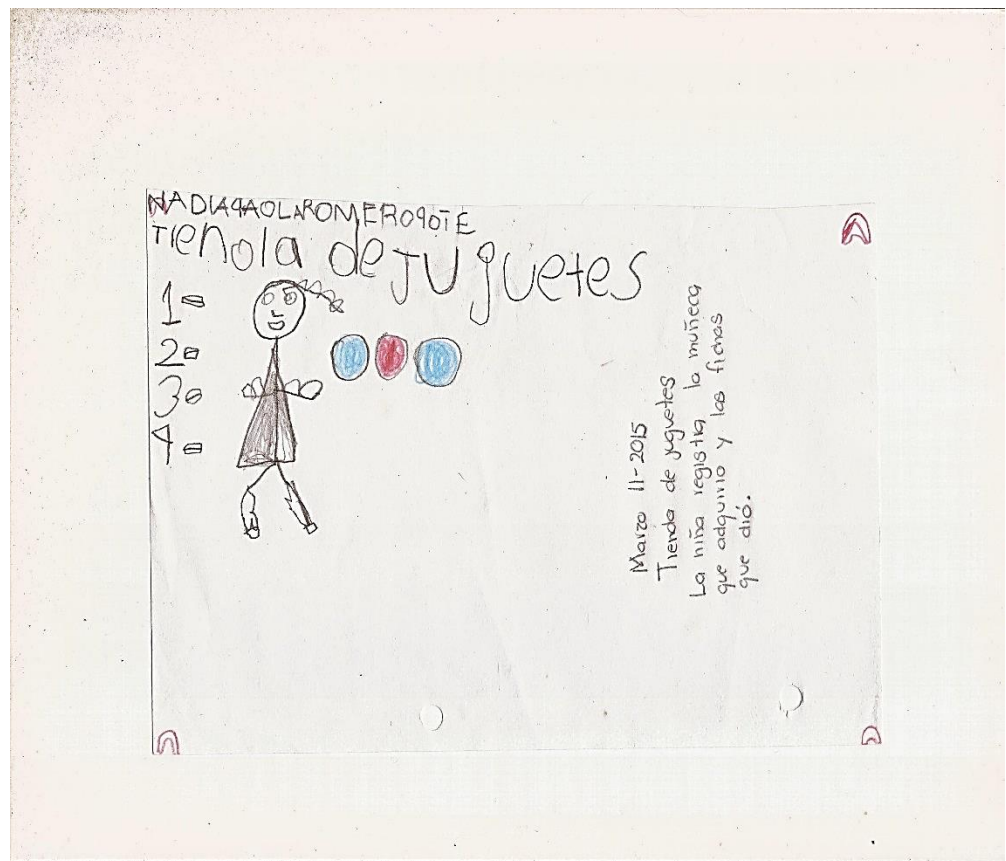 NADIAPAOLAROMEROPOTE
Tienola de JUguetes
1=
2=
3=
4=
Marzo 11-2015
Tienda de juguetes
La niña registra la muñeca
que adquirio y las fichas
que dió.